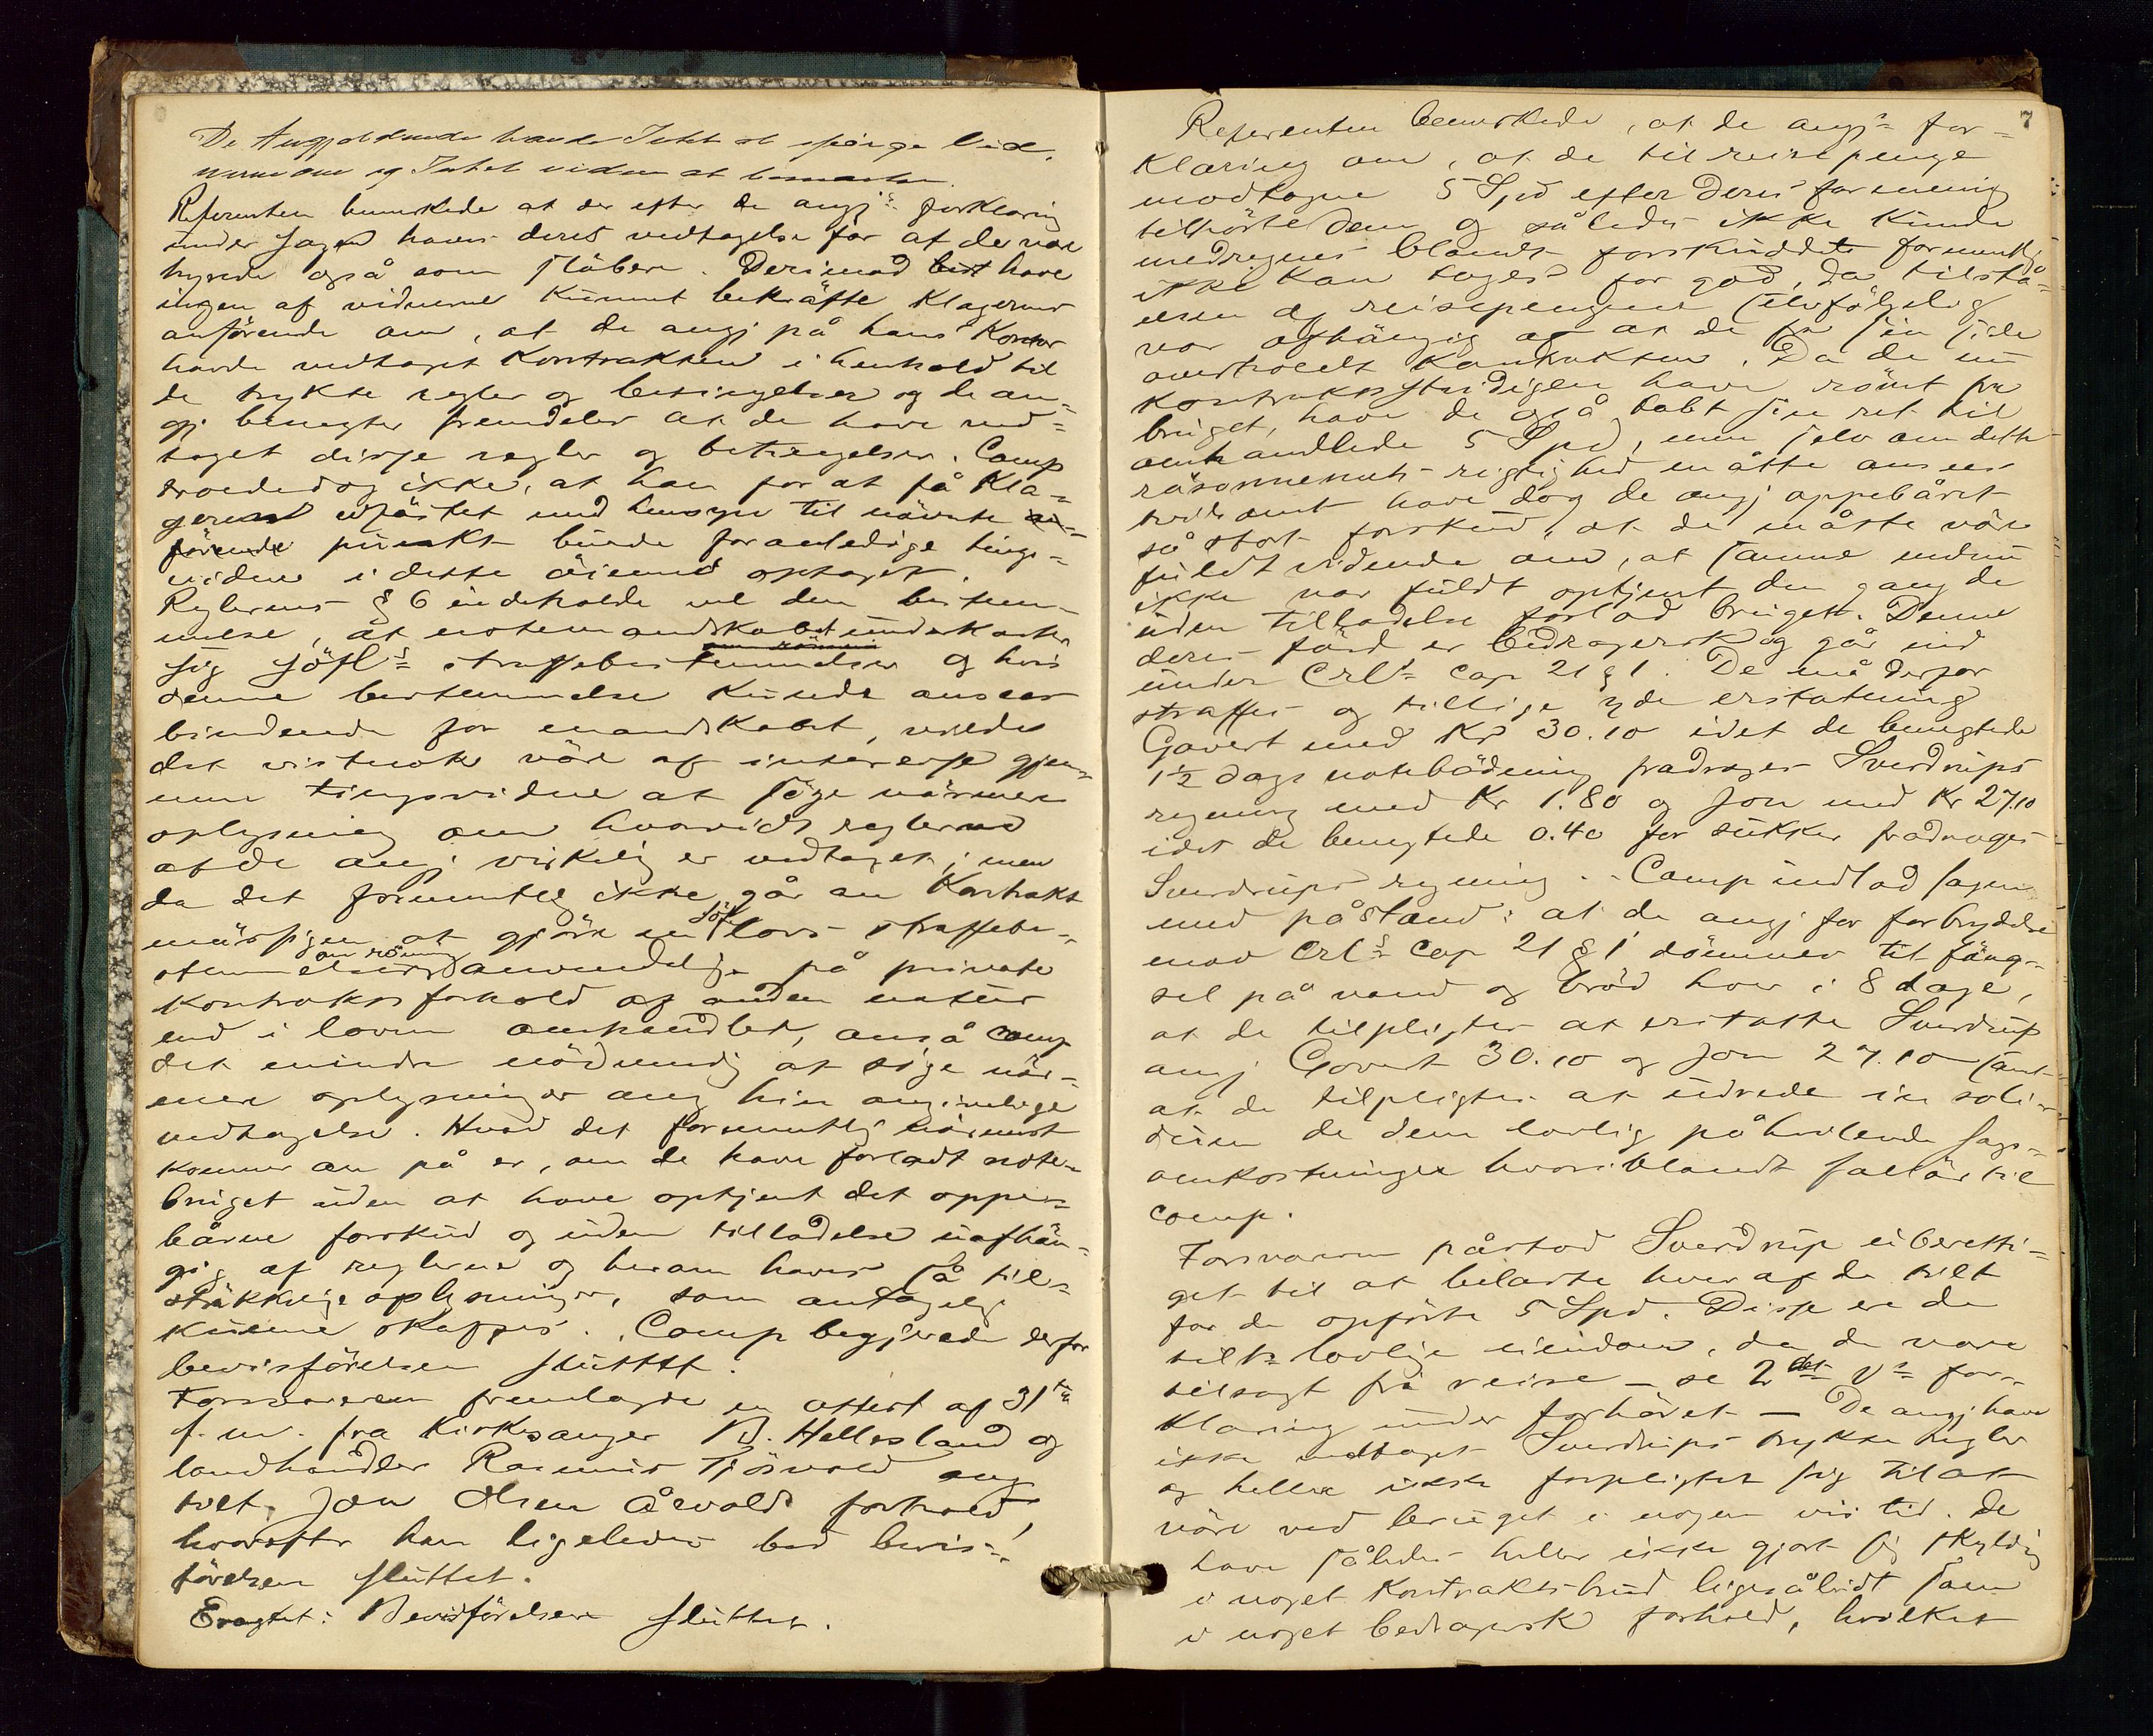 De Angjældende havde Intet at spörge Vid-
nerne om og Intet videre at bemærke.
Referenten bemerkede at der efter de angj<sup>s</sup> forklaring
under sagen haves deres vedtagelse for at de var
hyrede også som fløbere. Derimod har
ingen af vidnerne kunnet bekräfte Klagerens
anförende om, at de angj på hans Kontor
havde vedtaget Kontrakten i henhold til
de trykte regler og betingelser og de an-
gj benegter fremdeles at de have ved-
taget disse regler og betingelser. Comp
troede dog ikke, at han for at få Kla-
gerens udpåstet med hensyn til nävnte
punkt burde foranledige tings-
vidne i dette öiemed optaget.
Reglernes § 6 indeholde vel den bestem-
melse, at notemandskabet underkaster
sig söfl<sup>s</sup> straffebestemmelser og hvis
denne bestemmelse kunde ansees
bindende for mandskabet, vilde
det vistnok väre af interesse gjen-
nem tingsvidne at söge närmere
oplysning om hvorvidt reglerne
af de angj virkelig er vedtaget; men
da det formentlig ikke går an Kontrakt
mässigen at gjöre en söf lovs straffebe-
stemmelser om römning anvendelige på private
kontraktsforhold af anden natur
end i loven omhandlet, anså comp
det mindre nödvendig at söge när-
mere oplysninger ang hin angivelige
vedtagelse. Hvad det formentlig närmest
kommer an på er, om de have forladt note-
bruget uden at have optjent det oppe-
bårne forskud og uden tilladelse uafhän-
gig af reglerne og herom haves så til-
sträkkelige oplysninger, som antagelig
kunne skaffes. Comp begjærede derfor
bevisförelsen sluttet.
Forsvareren fremlagde en attest af 31<sup>te</sup>
f. m. fra Kirkesanger B. Hellesland og
landhandler Rasmus Tjösvold ang
tilt. Jon Olsen Årvolds forhold,
hvorefter han ligeledes bad bevis-
förelsen sluttet.
Eragtet: Bevisförelsen sluttes.
7
Referenten bemerkede, at de angj<sup>s</sup> for-
klaring om, at de til reisepenge
modtagne 5 Spd efter deres formening
tilhörte dem og således ikke kunde
medregnes blandt forskuddet formentlig
ikke kan tages for god, da tilstå-
elsen af reisepengene selvfölgelig
var afhängig af at de fra sin side
overholdt Kontrakten. Da de nu
kontraktsstridigen have römt fra
bruget, have de også tabt sin ret til
omhandlede 5 Spd, men selv om dette
räsonnements rigtighed måtte ansees
tvilsomt have dog de angj oppebåret
så stort forskud, at de måtte väre
fuldt vidende om, at samme endnu
ikke var fuldt optjent den gang de
uden tilladelse forlod bruget. Denne
deres färd er bedragersk og går ind
under Crl<sup>s</sup> cap 21 § 1. De må derfor
straffes og tillige yde erstatning
Govert med Kr 30.10 idet de benegtede
1½ dags notebödning fradrages Sverdrups
regning med Kr 1.80 og Jon med Kr 27.10
idet de benegtede 0.40 for sukker fradrages
Sverdrups regning. Comp indlod sagen
med påstand: at de angj for forbrydelse
mod Crl<sup>s</sup> Cap 21 § 1 dömmes til fäng-
sel på vand og bröd hver i 8 dage,
at de tilpligtes at erstatte Sverdrup
angj Govert 30.10 og Jon 27.10 samt
at de tilpligtes at udrede in soli-
dum de dem lovlig påhvilende sags-
omkostninger hvoriblandt sallär til
comp.
Forsvareren påstod Sverdrup uberetti-
get til at belaste hver af de tilt
for de opförte 5 Spd. Disse ere de
tilt<sup>s</sup> lovlige eiendom, da de vare
tilsagt fri reise – se 2<sup>det</sup> V<sup>s</sup> for-
klaring under forhöret – De angj have
ikke vedtaget Sverdrups trykte regler
og heller ikke forpligtet sig til at
väre ved bruget i nogen vis tid. De
have således heller ikke gjort sig skyldig
i noget Kontraktsbrud ligesålidt som
i noget bedragersk forhold, hvilket